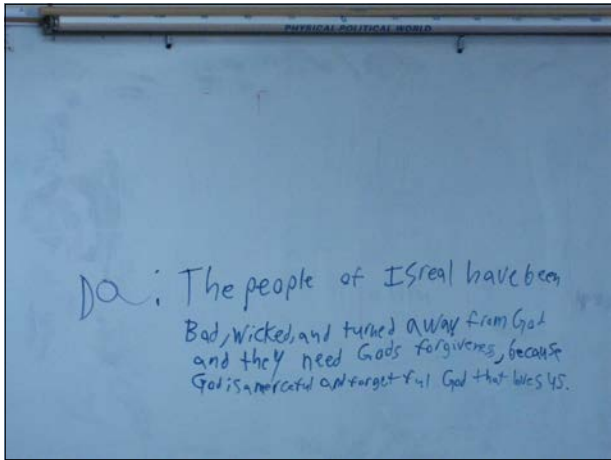 PHYSICAL POLITICAL WORLD
Da: The people of ISreal have been
Bad, wicked, and turned away from God
and they need Gods forgivenes, because
God is a merceful and forgetful God that loves us.